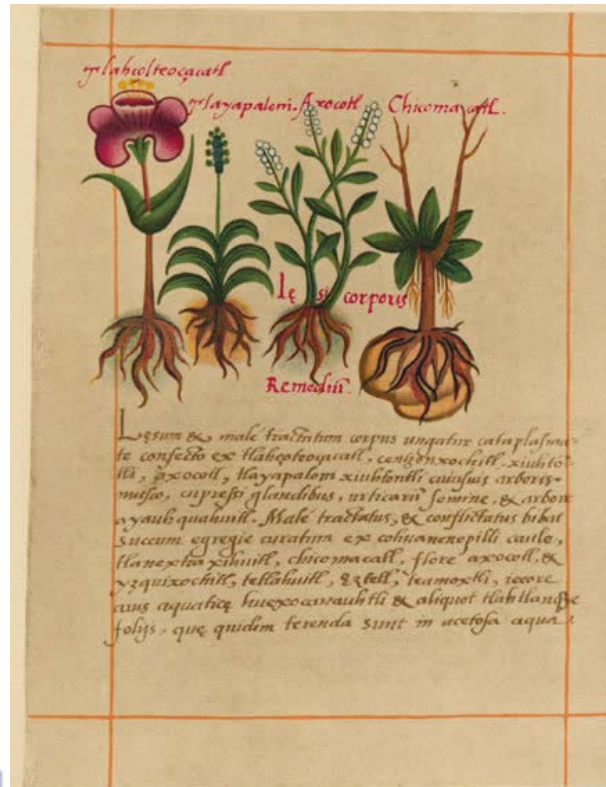 Tlahcolteoçacatl.
Tlayapaloni. Axocotl. Chicomacatl.
Lę si corporis
Remediũ.
Lęsum & malè tractatum corpus ungatur cataplasma-
te confecto ex tlahçoteoçacatl, centzonxochitl, xiuhto-
tli, axocotl, tlayapaloni xiuhtontli cuiusuis arboris
musco, cupressi glandibus, urticarũ semine, & arbore
ayauh quahuitl. Malè tractatus, & conflictatus bibat
succum egregie curatum ex cohuanenepilli caule,
tlanextia xihuitl, chicomacatl, flore axocotl, &
yzquixochitl, tetlahuitl, eztetl, teamoxtli, iecore
auis aquaticę huexocanauhtli & aliquot tlahtlancuye
folijs, quę quidem terenda sunt in acetosa aqua.